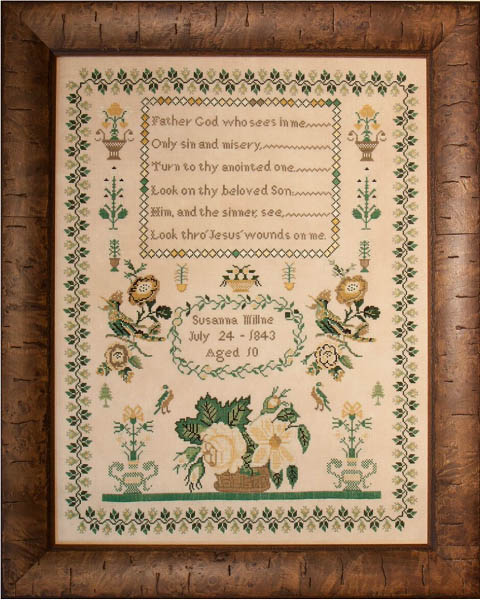 Father God who sees in me
Only sin and misery,
Turn to thy anointed one
Look on thy beloved Son;
Him, and the sinner, see,
Look thro' Jesus' wounds on me.
Susanna Millne
July 24 - 1843
Aged 10